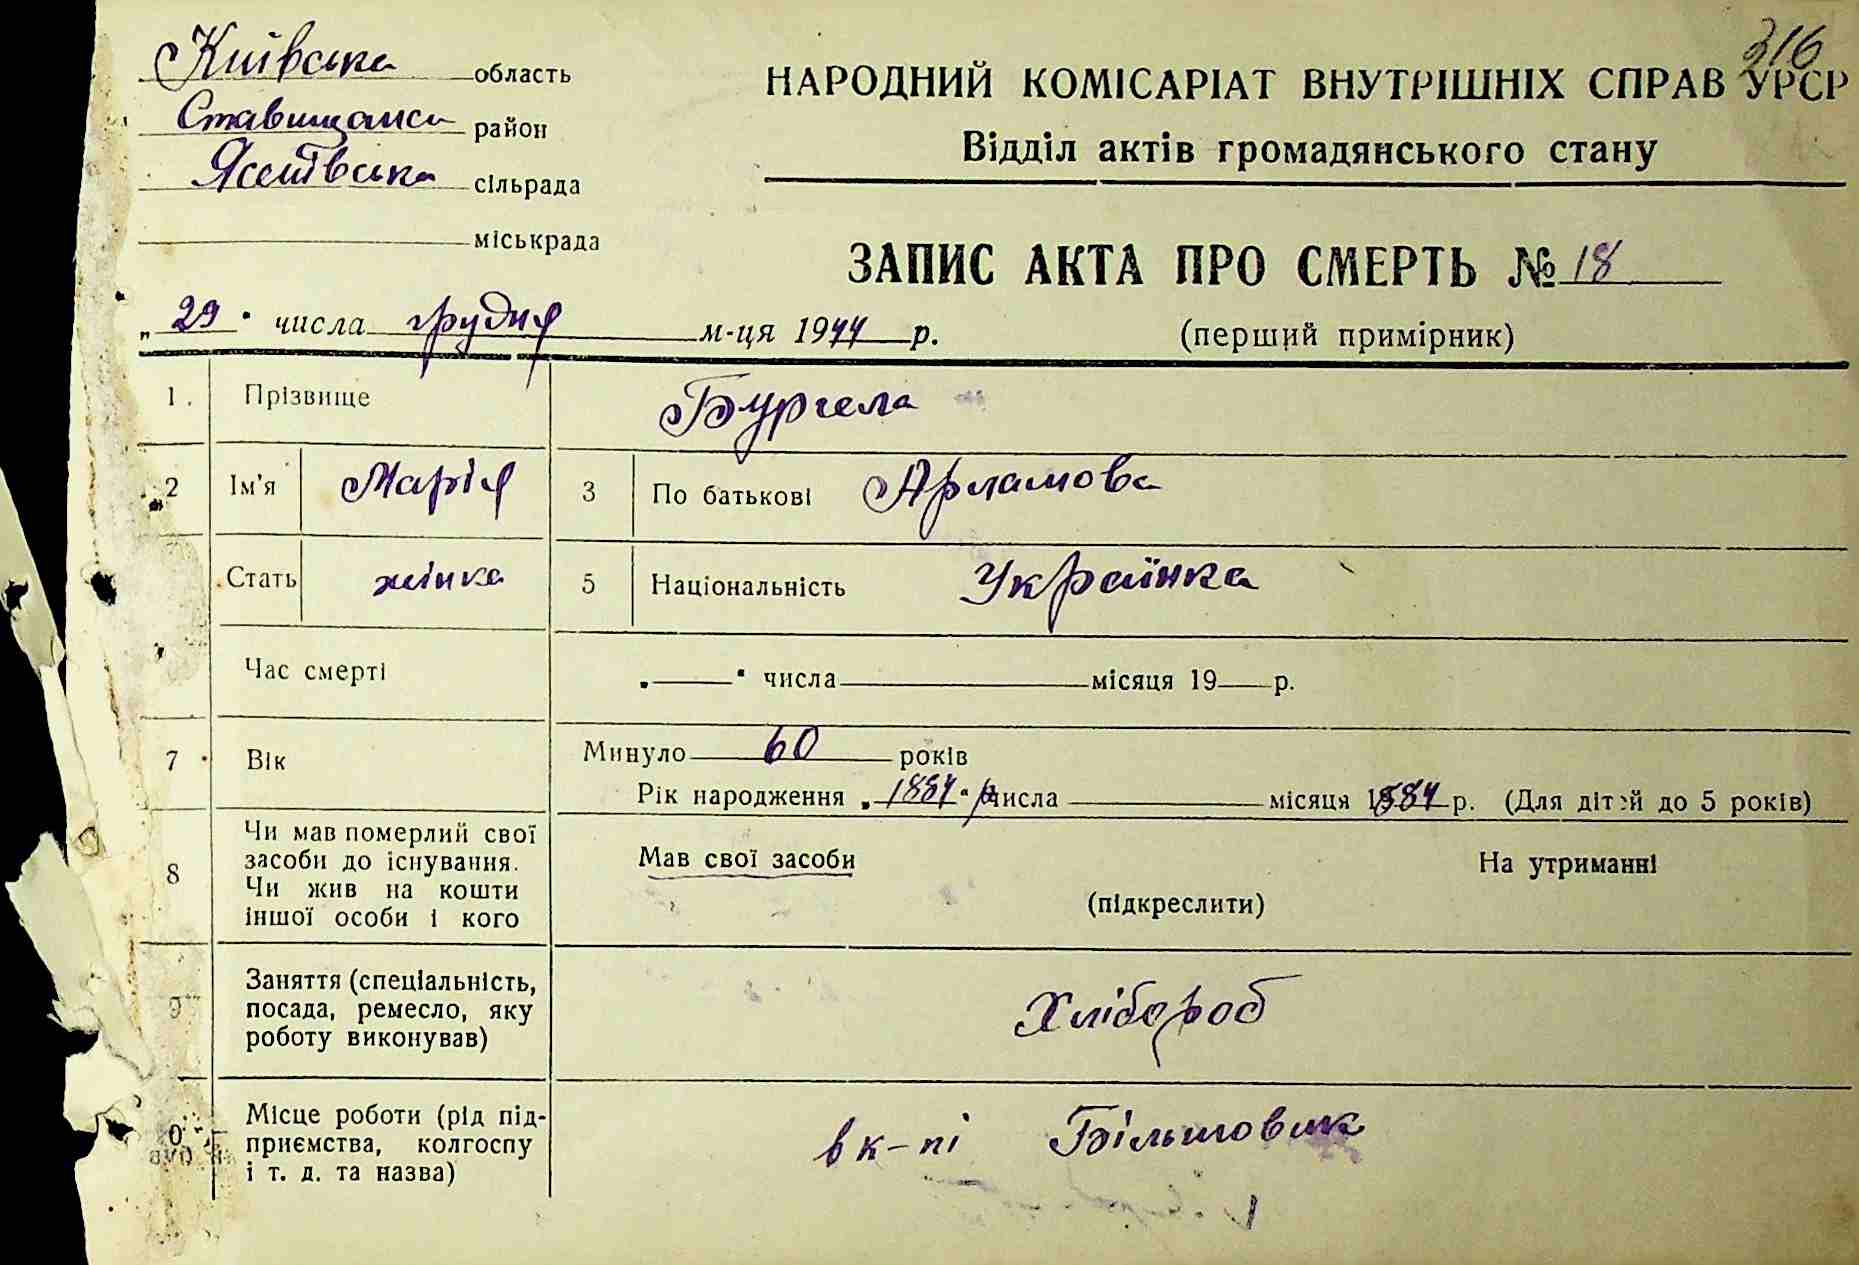 316
Київська область
НАРОДНИЙ КОМІСАРІАТ ВНУТРІШНІХ СПРАВ УРСР
Ставищанск район
Відділ актів громадянського стану
сільрада
міськрада
ЗАПИС АКТА ПРО СМЕРТЬ № 18
„ 29 " числа грудня м-ця 1944 р.
(перший примірник)
1. Прізвище Бургела
2 Ім'я Марія 3 По батькові Арламова
Стать жінка 5 Національність Українка
Час смерті „ " числа місяця 19 р.
7 Вік Минуло 60 років
Рік народження „ 1884 " р числа місяця 1884 р. (Для дітей до 5 років)
8 Чи мав померлий свої
засоби до існування.
Чи жив на кошти
іншої особи і кого
Мав свої засоби На утриманні
(підкреслити)
9 Заняття (спеціальність,
посада, ремесло, яку
роботу виконував)
Хлібороб
0 Місце роботи (рід під-
приємства, колгоспу
і т. д. та назва)
в к-пі Більшовик